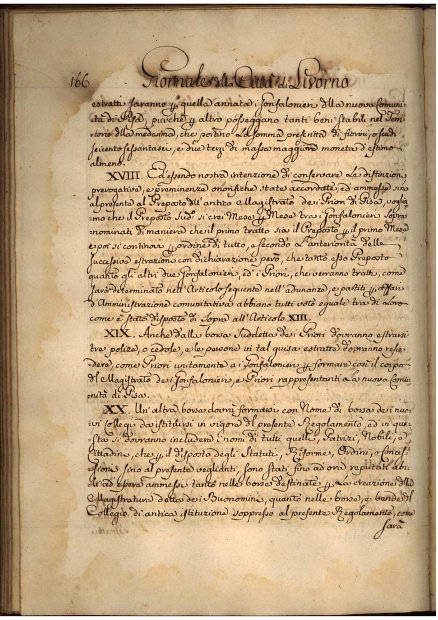 166 Giornale di Città di Livorno
estratti saranno p quella annata i Gonfalonieri della nuova Comuni
tà di Pisa, purchè p altro posseggano tanti beni stabili nel Terri
torio della medesima, che portino la somma di fiorini, o scudi
seicento sessantasei, e due terzi di massa maggiore moneta d'estimo
almeno.
XVIII. Ed essendo nostra intenzione di conservare le distinzioni
prerogative, e preminenze onorifiche state accordate, ed ammesse sino
al presente al Proposto dell'antico Magistrato dei Priori di Pisa, voglia
mo che il Proposto si crei Mese p Mese tra i Gonfalonieri sopra
nominati di maniera che il primo tratto sia il Proposto p il primo Mese
e poi si continovi p ordine di tutto, e secondo l'anteriorità delle
successive estrazioni con dichiarazione però, che tanto esso Proposto
quanto gli altri due Gonfalonieri, ed i Priori, che verranno tratti, come
sarà determinato nell'Articolo seguente nell'adunanze, e partiti, p affari
d'Amministrazione comunitativa abbiano tutti voto eguale tra di loro
come è stato disposto di sopra all'Articolo XIII.
XIX. Anche dalla borsa suddetta dei Priori dovranno estrarsi
tre polize, o cedole, e le persone in tal guisa estratte dovranno risie
dere, come Priori unitamente ai Gonfalonieri p formare così il corpo
del Magistrato dei Gonfalonieri, e Priori rappresentanti la nuova Comu
nità di Pisa.
XX. Un'altra borsa dovrà formarsi con Nome di borsa dei nuo
vi Collegi da istituirsi in vigore del presente Regolamento, ed in que
sta si dovranno includere i nomi di tutti quelli, Patrizi, Nobili, e
Cittadini, che p il disposto degli Statuti, Riforme, Ordini, o Conces
sioni sino al presente veglianti, sono stati fino ad ora reputati abi
li ad essere ammessi tanto nelle borse destinate p la creazione della
Magistratura detta dei Buonomini, quanto nelle borse, o bende del
Collegio di antica istituzione soppresso al presente Regolamento, come
sarà